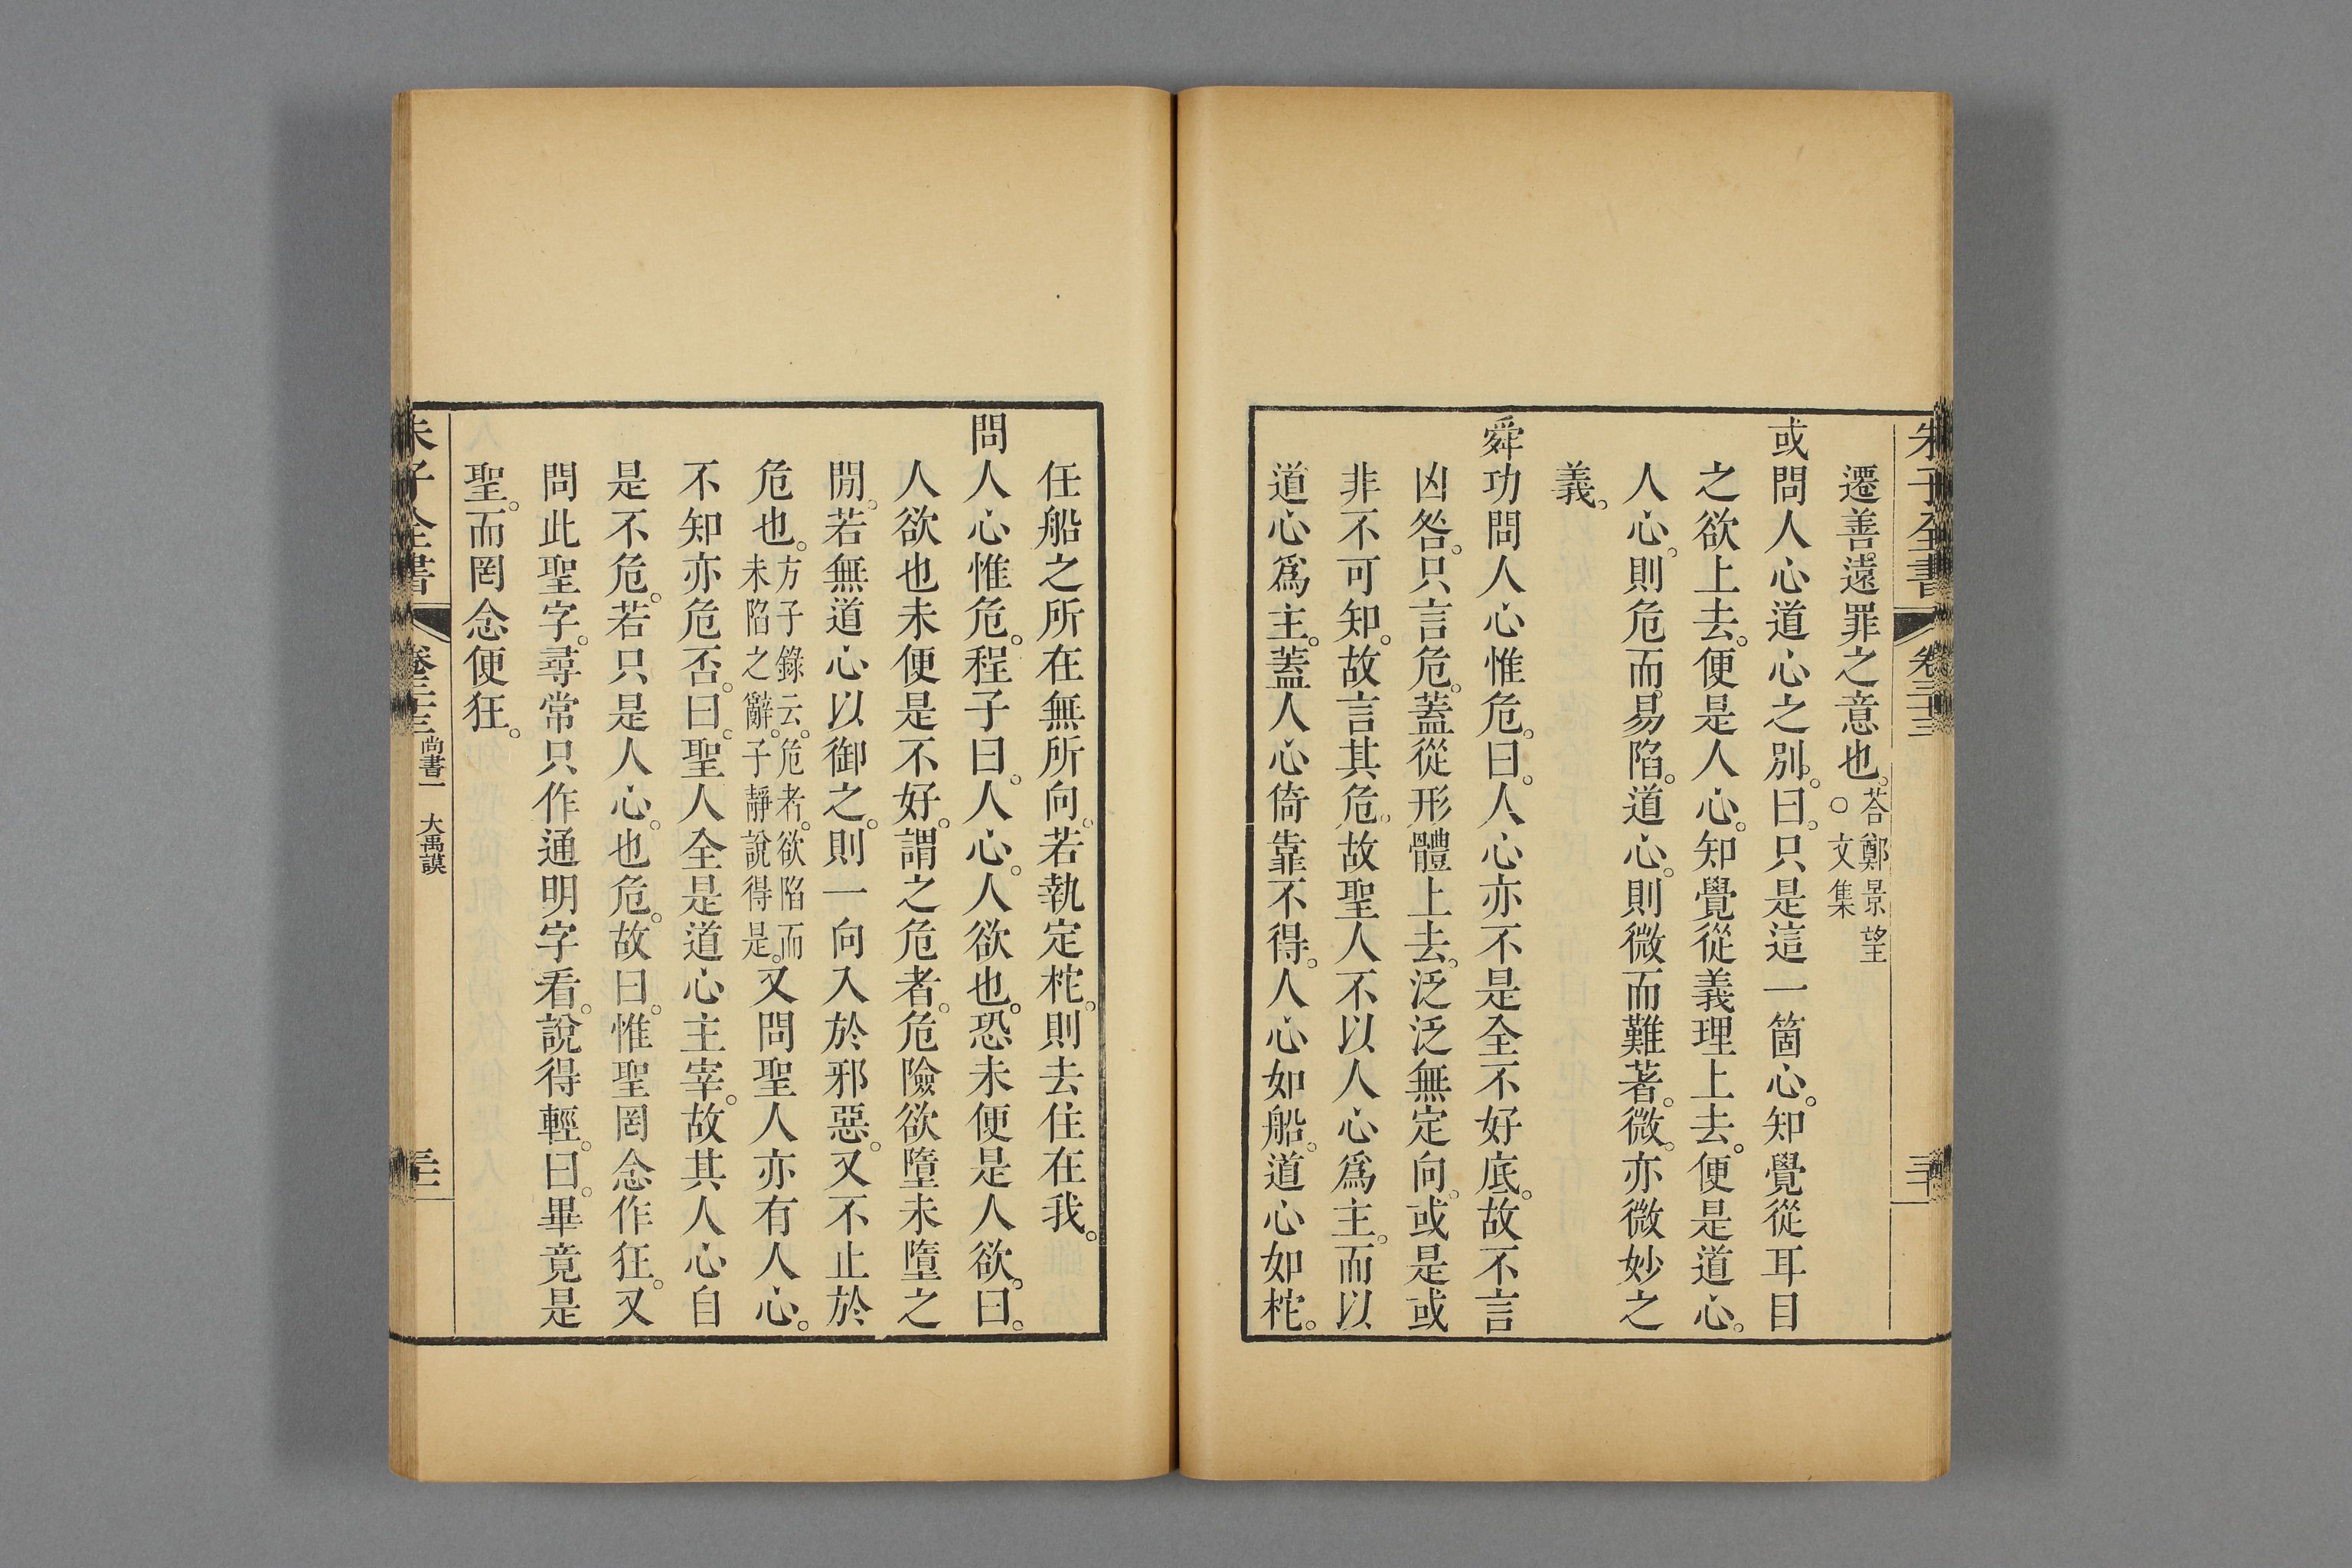 朱子全書 卷三十三 三十
遷善。遠罪之意也。答鄭景望〇文集
或問人心道心之別。曰。只是這一箇心。知覺從耳目
之欲上去。便是人心。知覺從義理上去。便是道心。
人心。則危而易陷。道心。則微而難著。微。亦微妙之
義。
舜功問人心惟危。曰。人心亦不是全不好底。故不言
凶咎。只言危。蓋從形體上去。泛泛無定向。或是或
非不可知。故言其危。故聖人不以人心爲主。而以
道心爲主。蓋人心倚靠不得。人心如船。道心如柁。
任船之所在無所向。若執定柁。則去住在我。
問人心惟危。程子曰。人心。人欲也。恐未便是人欲。曰。
人欲也未便是不好。謂之危者。危險欲墮未墮之
閒。若無道心以御之。則一向入於邪惡。又不止於
危也。方子錄云。危者。欲陷而未陷之辭。子靜說得是。又問聖人亦有人心。
不知亦危否。曰。聖人全是道心主宰。故其人心自
是不危。若只是人心。也危。故曰。惟聖罔念作狂。又
問此聖字。尋常只作通明字看。說得輕。曰。畢竟是
聖。而罔念便狂。
朱子全書 卷三十三 尚書一 大禹謨 三十